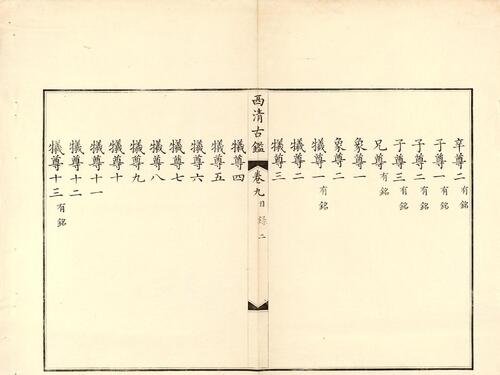 辛尊二 有銘
子尊一 有銘
子尊二 有銘
子尊三 有銘
兄尊 有銘
象尊一
象尊二
犠尊一 有銘
犠尊二
犠尊三
西清古鑑 卷九目錄 二
犠尊四
犠尊五
犠尊六
犠尊七
犠尊八
犠尊九
犠尊十
犠尊十一
犠尊十二
犠尊十三 有銘